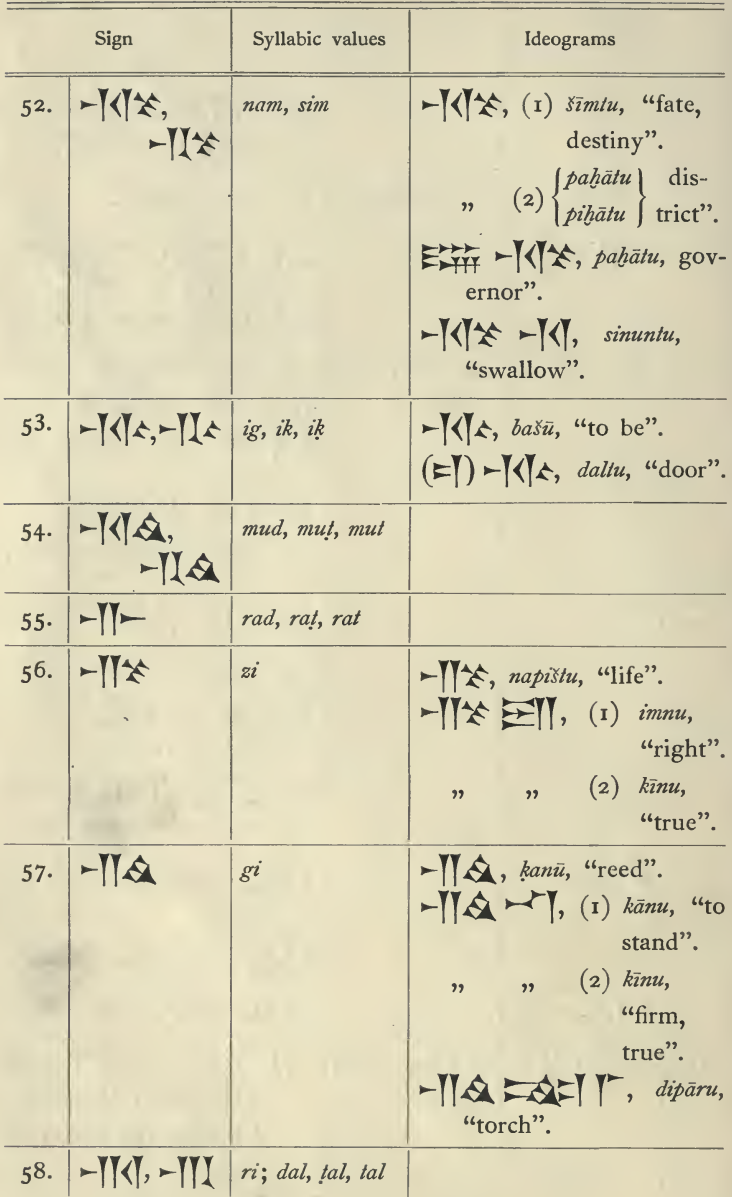 Sign Syllabic values Ideograms
52. 𒉆, nam, sim 𒉆, (1) šīmtu, “fate,
𒉆 destiny”.
„ (2) {paḫātu} dis-
{piḫātu} trict”.
𒂗 𒉆, paḫātu, gov-
ernor”.
𒉆 𒄷, sinuntu,
“swallow”.
53. 𒅅, 𒅅 ig, ik, iḳ 𒅅, bašū, “to be”.
(𒄑) 𒅅, daltu, “door”.
54. mud, muṭ, mut
55. rad, raṭ, rat
56. 𒍣 zi 𒍣, napištu, “life”.
𒍣 𒁕, (1) imnu,
“right”.
„ „ (2) kīnu,
“true”.
57. 𒄀 gi 𒄀, ḳanū, “reed”.
𒄀 𒈾, (1) kānu, “to
stand”.
„ „ (2) kīnu,
“firm,
true”.
𒄀 𒉋 𒇲, dipāru,
“torch”.
58. 𒊑, 𒊑 ri; dal, ṭal, tal